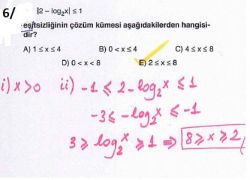 6/ |2 – log₂x| ≤ 1
eşitsizliğinin çözüm kümesi aşağıdakilerden hangisi-
dir?
A) 1 ≤ x ≤ 4 B) 0 < x ≤ 4 C) 4 ≤ x ≤ 8
D) 0 < x < 8 E) 2 ≤ x ≤ 8
i) x > 0 ii) -1 ≤ 2 - log₂x ≤ 1
-3 ≤ -log₂x ≤ -1
3 ≥ log₂x ≥ 1 ⇒ 8 ≥ x ≥ 2